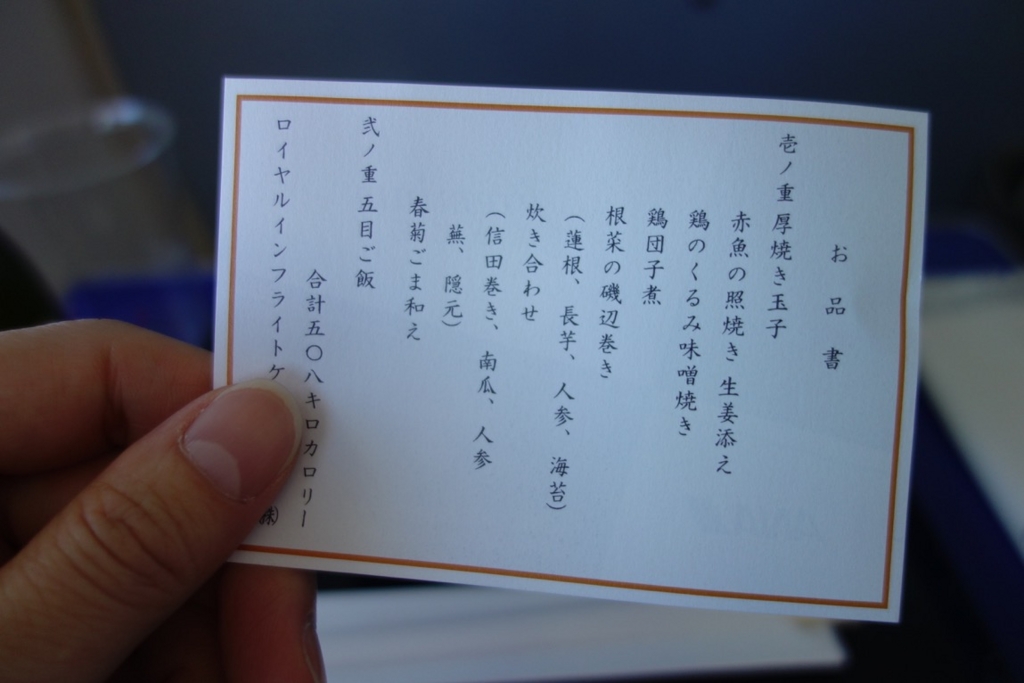 お品書
壱ノ重 厚焼き玉子
赤魚の照焼き 生姜添え
鶏のくるみ味噌焼き
鶏団子煮
根菜の磯辺巻き
(蓮根、長芋、人参、海苔)
炊き合わせ
(信田巻き、南瓜、人参
蕪、隠元)
春菊ごま和え
弐ノ重 五目ご飯
合計五〇八キロカロリー
ロイヤルインフライトケ
㈱